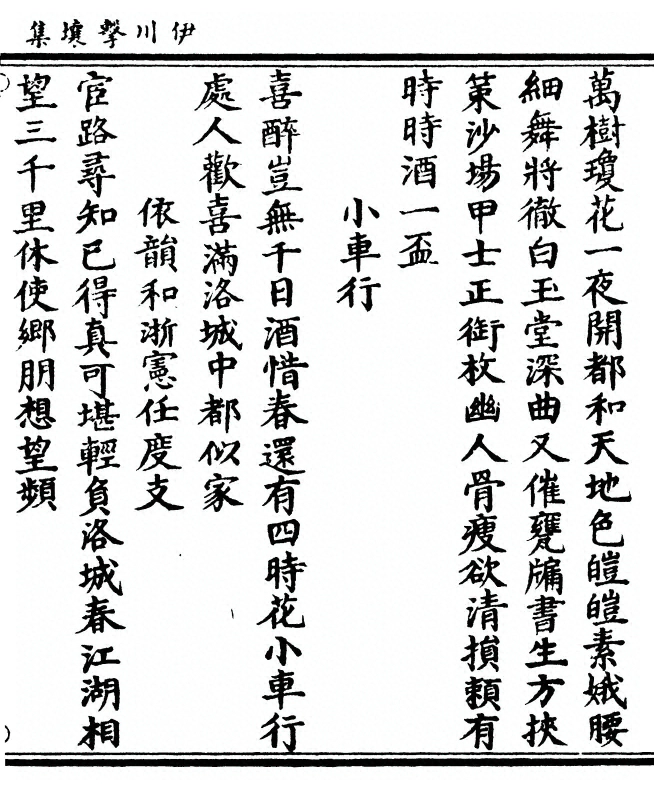 伊川擊壤集
萬樹瓊花一夜開都和天地色皚皚素娥腰
細舞將徹白玉堂深曲又催甕牖書生方挾
策沙場甲士正銜枚幽人骨瘦欲清損賴有
時時酒一盃
小車行
喜醉豈無千日酒惜春還有四時花小車行
處人歡喜滿洛城中都似家
依韻和浙憲任度支
宦路尋知已得真可堪輕負洛城春江湖相
望三千里休使鄉朋想望頻